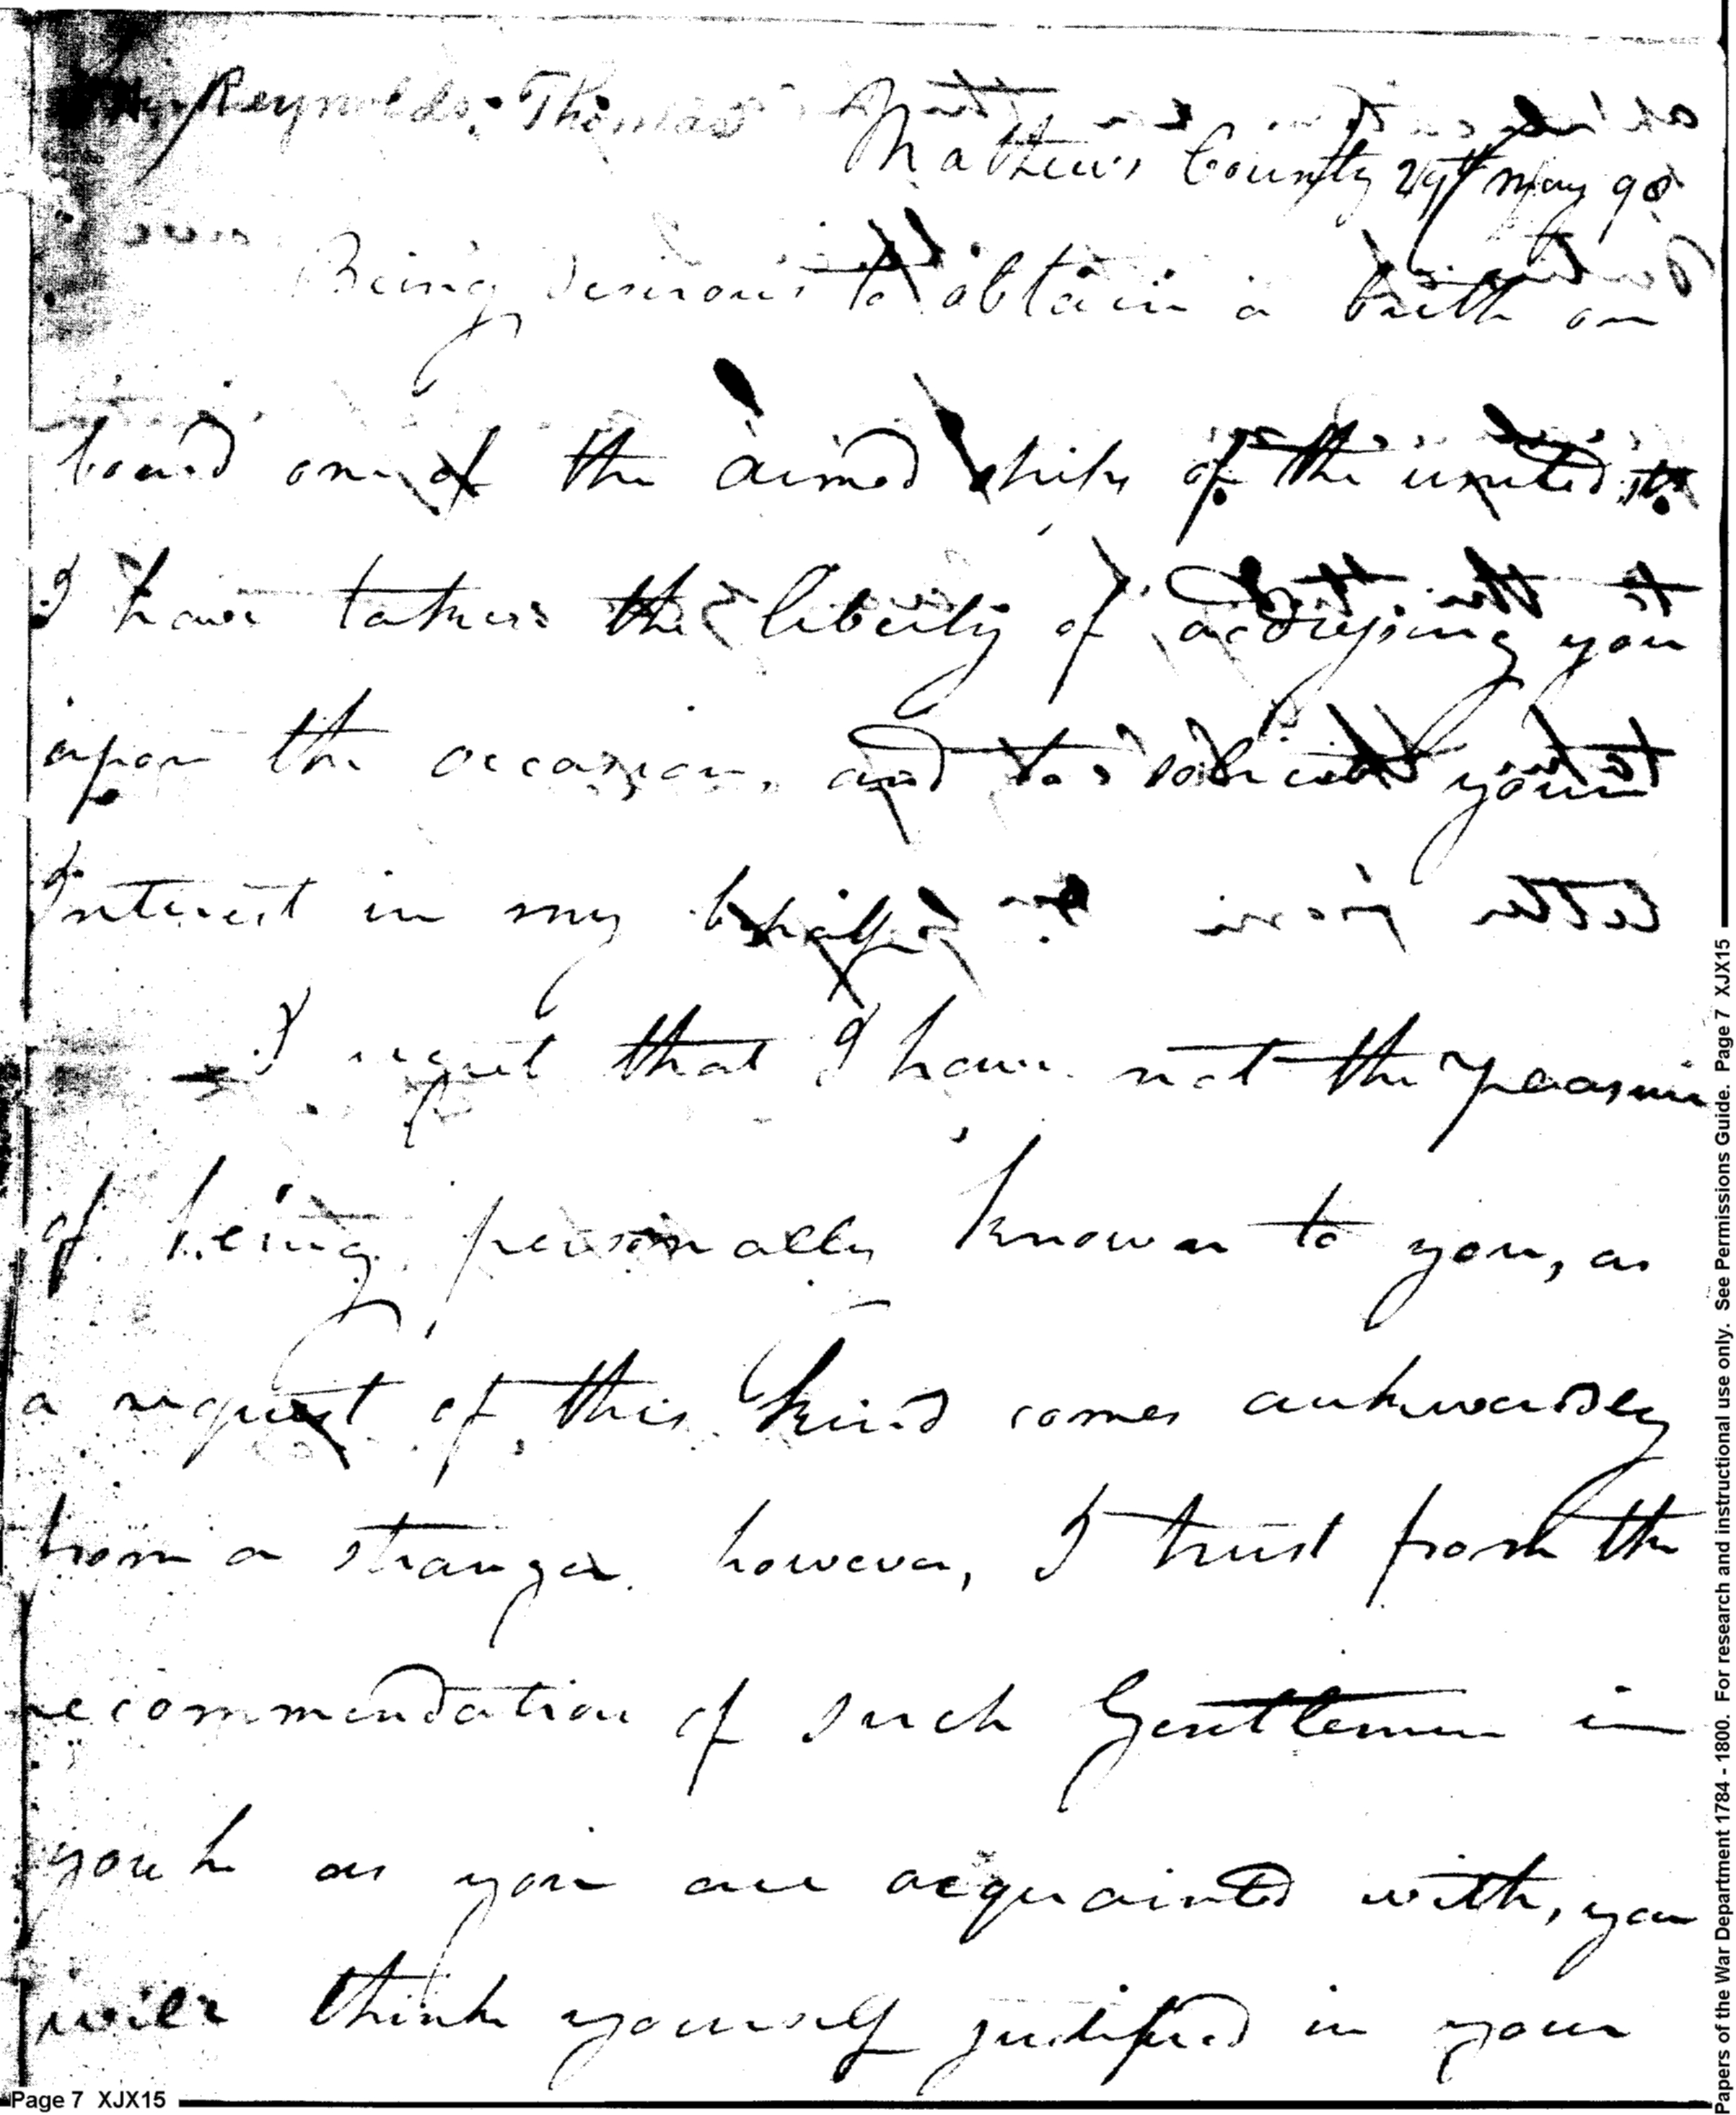 Reynolds, Thomas
Mathews County 29th May 98
Being desirous to obtain a birth on
board one of the armed ships of the united sts
I have taken the liberty of addressing you
upon the occasion, and to solicit your
Interest in my behalf
I regret that I have not the pleasure
of being personally known to you, as
a request of this kind comes aukwardly
from a stranger. however, I trust from the
recommendation of such Gentlemen in
as you are acquainted with, you
will think yourself justified in your
Page 7 XJX15
Papers of the War Department 1784 - 1800. For research and instructional use only. See Permissions Guide. Page 7 XJX15